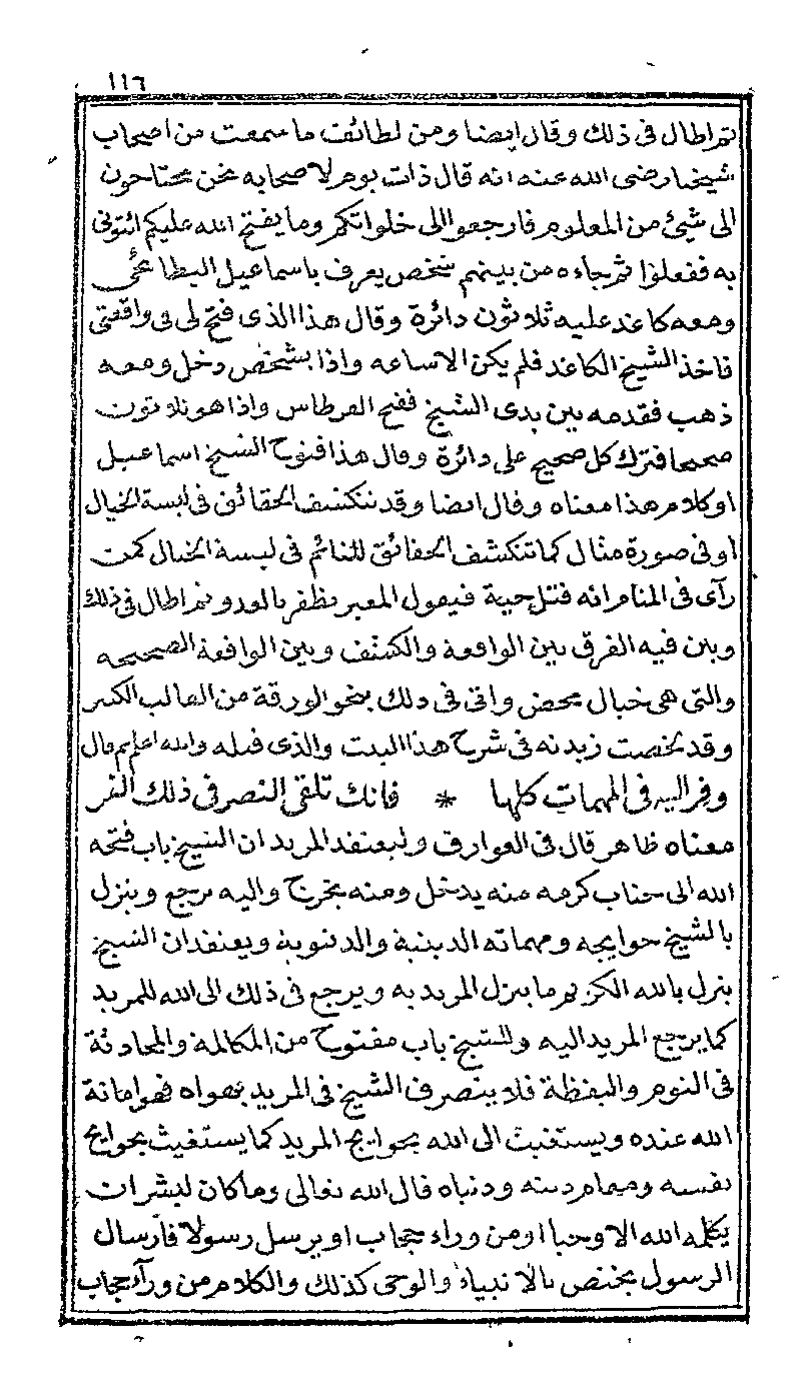 ١١٦
ثم اطال فى ذلك وقال ايضا ومن لطائف ما سمعت من اصحاب
شيخنا رضى الله عنه انه قال ذات يوم لاصحابه نحن محتاجون
الى شيئ من المعلوم فارجعوا الى خلواتكم وما يفتح الله عليكم ائتونى
به ففعلوا ثم جاءه من بينهم شخص يعرف باسماعيل البطائحى
ومعه كاغد عليه ثلاثون دائرة وقال هذا الذى فتح لى فى واقعتى
فاخذ الشيخ الكاغد فلم يكن الا ساعه واذا بشخص دخل ومعه
ذهب فقدمه بين يدى الشيخ ففتح القرطاس واذا هو ثلاثون
صحيحا فترك كل صحيح على دائرة وقال هذا فتوح الشيخ اسماعيل
او كلام هذا معناه وقال ايضا وقد تنكشف الحقائق فى لبسة الخيال
او فى صورة مثال كما تنكشف الحقائق للنائم فى لبسة الخيال كمن
رآى فى المنام انه قتل حية فيقول المعبر يظفر بالعدو ثم اطال فى ذلك
وبين فيه الفرق بين الواقعة والكشف وبين الواقعة الصحيحه
والتى هى خيال محض واتى فى ذلك بنحو الورقة من القالب الكبير
وقد لخصت زبدته فى شرح هذا البيت والذى قبله والله اعلم ثم قال
وفر اليه فى المهمات كلها * فانك تلقى النصر فى ذلك الفر
معناه ظاهر قال فى العوارف وليعتقد المريد ان الشيخ باب فتحه
الله الى جناب كرمه منه يدخل ومنه يخرج واليه يرجع وينزل
بالشيخ حوايجه ومهماته الدينية والدنيوية ويعتقد ان الشيخ
ينزل بالله الكريم ما ينزل المريد به ويرجع فى ذلك الى الله للمريد
كما يرجع المريد اليه وللشيخ باب مفتوح من المكالمة والمحادثة
فى النوم واليقظة فلا يتصرف الشيخ فى المريد بهواه فهو امانة
الله عنده ويستغيث الى الله بحوايج المريد كما يستغيث بحوايج
نفسه ومهام دينه ودنياه قال الله تعالى وما كان لبشر ان
يكلمه الله الا وحيا او من وراء حجاب او يرسل رسولا فارسال
الرسول يختص بالانبياء والوحى كذلك والكلام من ورآء حجاب